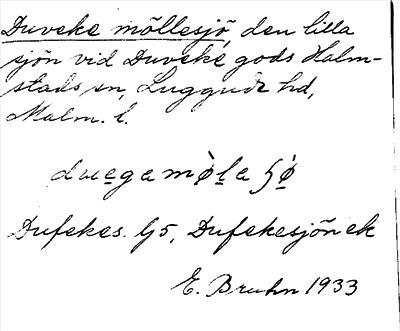 Duveke möllesjö, den lilla
sjön vid Duveke gods Halm-
stads sn, Luggude hd,
Malm. l.
Dufekes. G5, Dufekesjön ek
E. Bruhn 1933